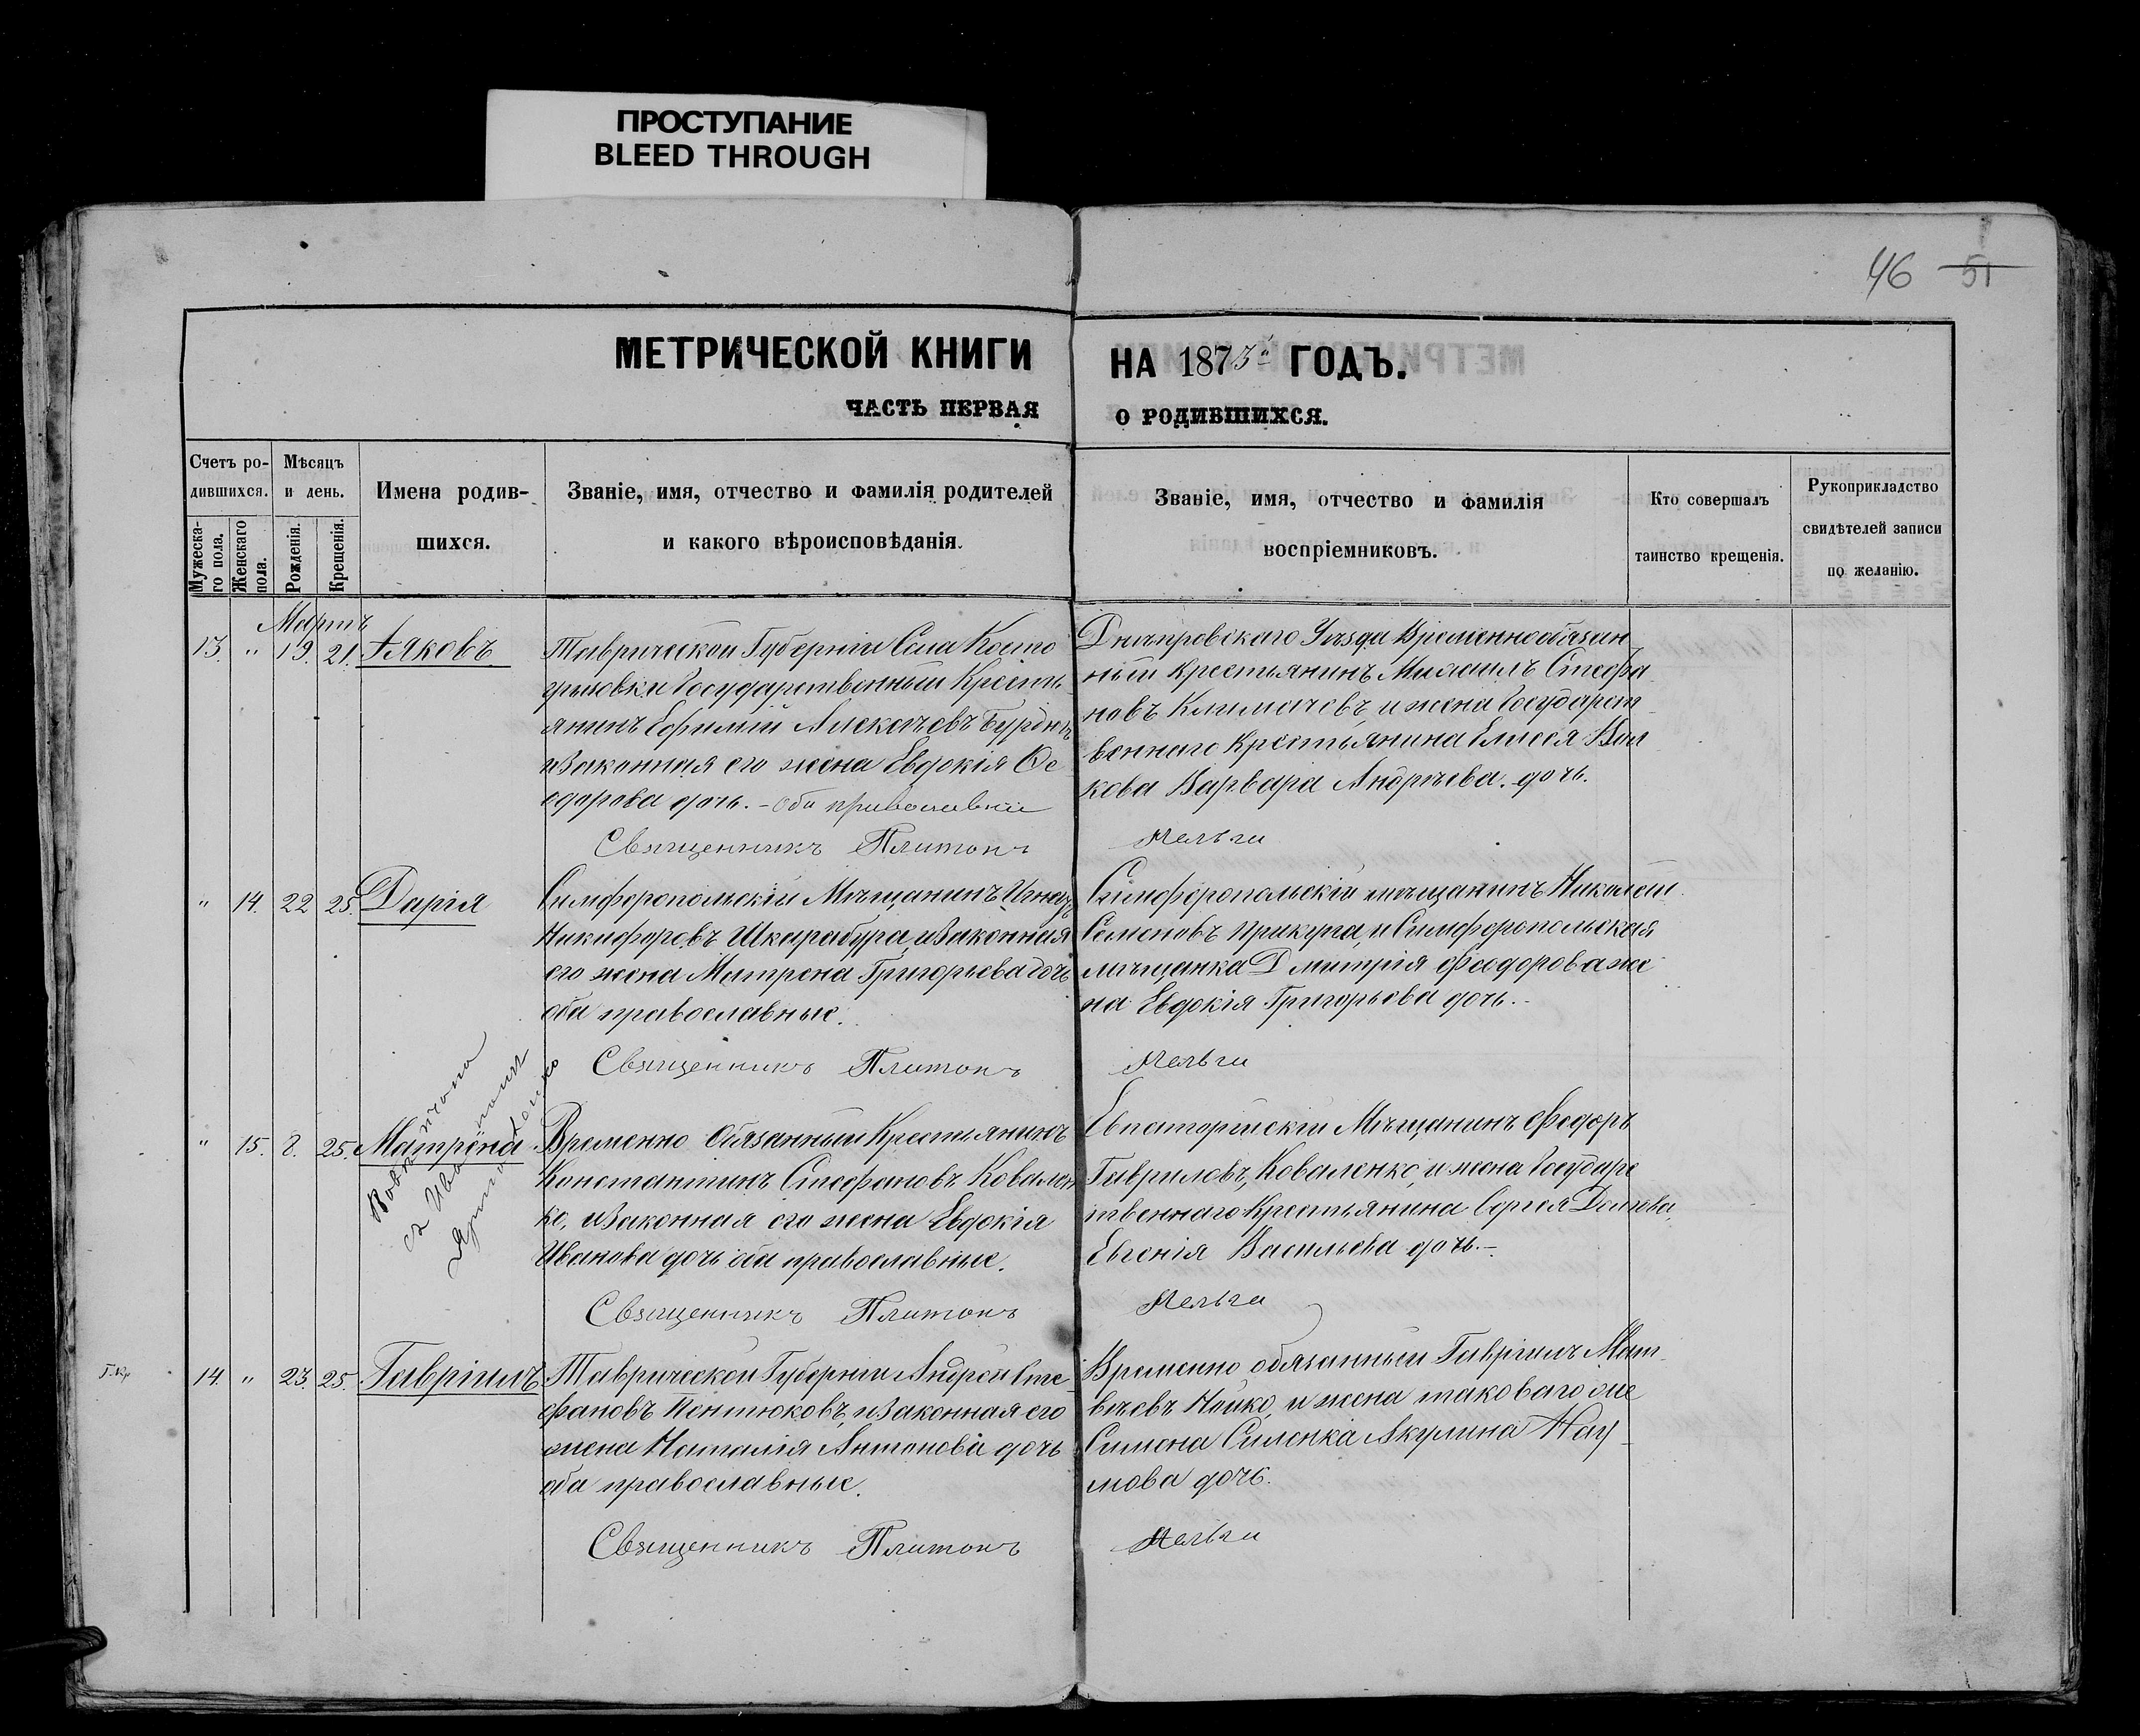 ПРОСТУПАНИЕ
BLEED THROUGH
46 51
МЕТРИЧЕСКОЙ КНИГИ НА 1875й ГОДЪ.
ЧАСТЬ ПЕРВАЯ О РОДИВШИХСЯ.
Счетъ родившихся.
Мужескаго пола.
Женскаго пола.
Мѣсяцъ и день.
Рожденія.
Крещенія.
Имена родившихся.
Званіе, имя, отчество и фамилія родителей
и какого вѣроисповѣданія.
Званіе, имя, отчество и фамилія
воспріемниковъ.
Кто совершалъ
таинство крещенія.
Рукоприкладство
свидѣтелей записи
по желанію.
Мартъ
13. " 19. 21. Іаковъ
Таврической Губерніи Села Косто
грызовки Государственный Кресть
янинъ Ефимій Алексѣевъ
изаконная его жена Евдокія Ѳе
одорова дочь. - оба православніи
Священникъ Платонъ
Днѣпровскаго Уѣзда Временнообязан
ный Крестьянинъ Михаилъ Стефа
новъ Климачевъ, и жена Государст
веннаго Крестьянина Елисея Вол
кова Варвара Андрѣева. дочь.
" 14. 22 25. Дарія
Симферопольскій Мѣщанинъ
Никифоровъ Шкарабура, изаконная
его жена Матрона Григорьева дочь
оба православные.
Священникъ Платонъ
Симферопольскій мѣщанинъ Николай
Семеновъ Прикуна, и Симферопольская
мѣщанка Дмитрія Феодорова же
на Евдокія Григорьева дочь.-
" 15. 8. 25. Матрона
Временно Обязанный Крестьянинъ
Константинъ Стефановъ Ковален
ко, изаконная его жена Евдокія
Иванова дочь оба православные.
Священникъ Платонъ
Евпаторійскій Мѣщанинъ Федоръ
Гавриловъ, Коваленко, и жена Государс
твеннаго Крестьянина Сергея
Евгенія Васильева дочь.-
14. " 23. 25. Гавріилъ
Таврической Губерніи Андрей Сте
фановъ Пентюковъ, изаконная его
жена Наталія Антонова дочь
оба православные.
Священникъ Платонъ
Временно обязанный Гавріилъ Мат
вѣевъ Нойко, и жена таковаго же
Симона Силенка Акулина Нау
мова дочь.